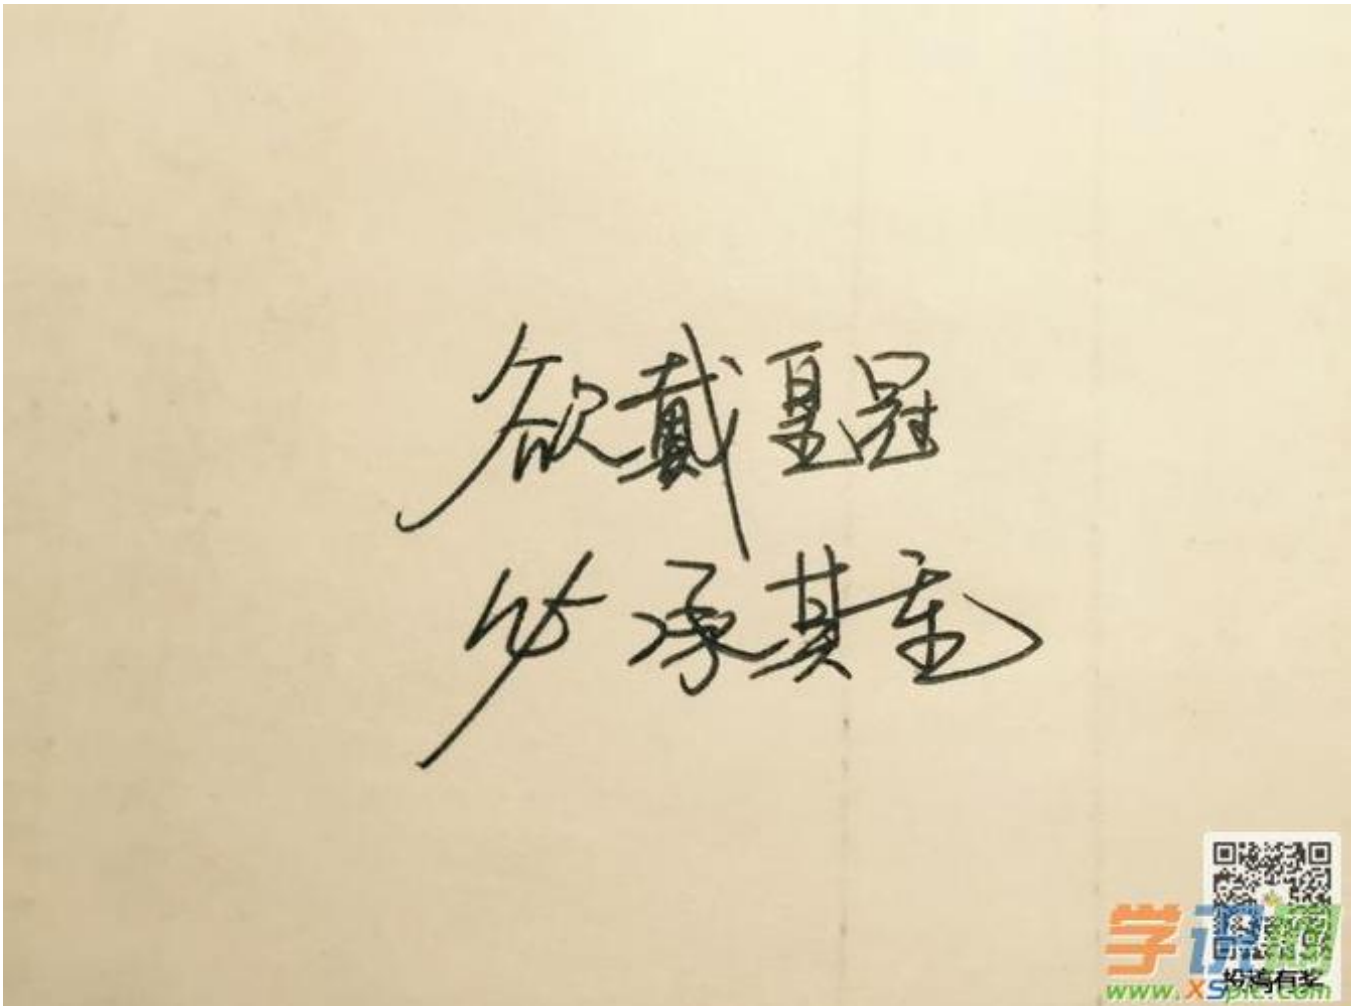 欲戴皇冠
必承其重
学识网
投稿有奖
www.xspic.com